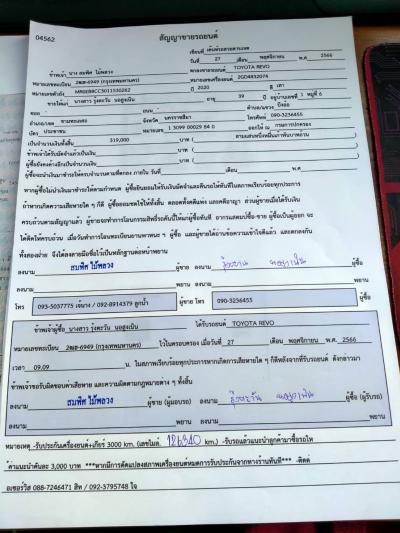 04562
สัญญาขายรถยนต์
เขียนที่ เต็นท์รถสวยตาแดด
วันที่ 27 เดือน พฤศจิกายน พ.ศ. 2566
ข้าพเจ้า นาง สมพิศ ไม้พลวง ตกลงขายรถยนต์ TOYOTA REVO
หมายเลขทะเบียน 2ฒฮ-6949 (กรุงเทพมหานคร) หมายเลขเครื่องยนต์ 2GD4832074
หมายเลขตัวถัง ปี 2020 สี เทา
ขายให้แก่ นางสาว รุ่งตะวัน นอสูงเนิน อายุ 39 ปี อยู่บ้านเลขที่ 1 หมู่ที่ 6
ซอย - ถนน - ตำบล/แขวง บึงอ้อ
อำเภอ/เขต ขามทะเลสอ จังหวัด นครราชสีมา โทรศัพท์ 090-3236455
บัตร ประชาชน หมายเลข 1 3099 00029 84 0 ออกให้ ณ กรมการปกครอง
เป็นจำนวนเงินทั้งสิ้น 319,000 บาท ( สามแสนหนึ่งหมื่นเก้าพันบาทถ้วน )
ข้าพเจ้าได้รับมัดจำแล้วเป็นเงิน บาท ( )
ผู้ซื้อยังคงค้างอีกเป็นจำนวนเงิน บาท ( )
ผู้ซื้อจะนำเงินมาชำระให้ครบจำนวนตามที่ตกลง ภายใน วันที่ เดือน พ.ศ.
หากผู้ซื้อไม่นำเงินมาชำระให้ตามกำหนด ผู้ซื้อยินยอมให้ริบเงินมัดจำและคืนรถให้ทันทีในสภาพเรียบร้อยทุกประการ
ถ้าหากเกิดความเสียหายใด ๆ ก็ดี ผู้ซื้อยอมชดใช้ให้ทั้งสิ้น ตลอดทั้งคดีแพ่ง และคดีอาญา ส่วนผู้ขายเมื่อได้รับเงิน
ครบถ้วนตามสัญญาแล้ว ผู้ขายจะทำการโอนกรรมสิทธิ์รถคันนี้ให้แก่ผู้ซื้อทันที อากรแสตมป์ซื้อ-ขาย ผู้ซื้อเป็นผู้ออก จะ
ได้คิดให้ครบถ้วน เมื่อวันทำการโอนทะเบียนยานพาหนะ ฯ ผู้ซื้อ และผู้ขายได้อ่านข้อความเข้าใจดีแล้ว และตกลงกัน
ทั้งสองฝ่าย จึงได้ลงลายมือชื่อไว้เป็นหลักฐานต่อหน้าพยาน
ลงนาม สมพิศ ไม้พลวง ผู้ขาย ลงนาม รุ่งตะวัน นอสูงเนิน ผู้ซื้อ
ลงนาม พยาน ลงนาม พยาน
โทร 093-5037775 เจ้นาง / 092-8914379 ลูกน้ำ ผู้ขาย โทร 090-3236455 ผู้ซื้อ
ข้าพเจ้าผู้ซื้อ นางสาว รุ่งตะวัน นอสูงเนิน ได้รับรถยนต์ TOYOTA REVO
หมายเลขทะเบียน 2ฒฮ-6949 (กรุงเทพมหานคร) ไว้ในครอบครอง เมื่อวันที่ 27 เดือน พฤศจิกายน พ.ศ. 2566
เวลา 09.09 น. ในสภาพเรียบร้อยทุกประการหากเกิดการเสียหายใด ๆ ก็ดีหลังจากที่รับรถยนต์ ดังกล่าวมา
ข้าพเจ้าขอรับผิดชอบค่าเสียหาย และความผิดตามกฎหมายต่าง ๆ ทั้งสิ้น
ลงนาม สมพิศ ไม้พลวง ผู้ขาย (ผู้มอบรถ) ลงนาม รุ่งตะวัน นอสูงเนิน ผู้ซื้อ (ผู้รับรถ)
ลงนาม พยาน ลงนาม พยาน
หมายเหตุ -รับประกันเครื่องยนต์+เกียร์ 3000 km. (เลขไมล์. 126340 km.) -รับรถแล้วแนะนำลูกค้ามาซื้อรถให้
ค่าแนะนำคันละ 3,000 บาท ***หากมีการดัดแปลงสภาพเครื่องยนต์หมดการรับประกันจากทางร้านทันที*** -ติดต่อ
อเซอร์วิส 088-7246471 สิท / 092-3795748 ใจ